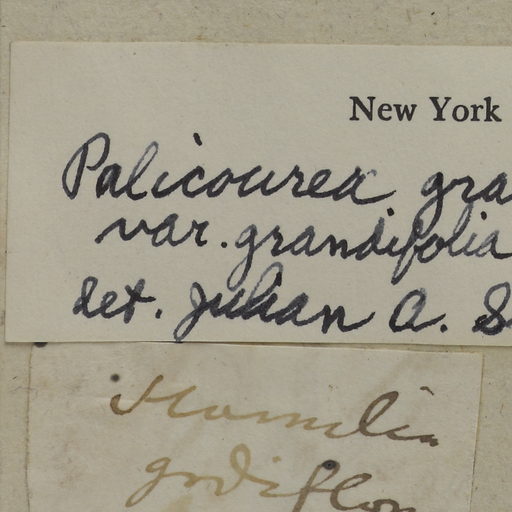 New York
Palicourea gra
var. grandifolia
det. Julian A. S
Hamelia
grdiflor